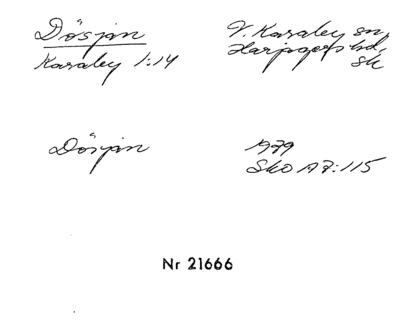 Dösjan
V. Karaby sn,
Karaby 1:14
Harjagers hd,
Sk
Dösjan
1979
Sko A7:115
Nr 21666